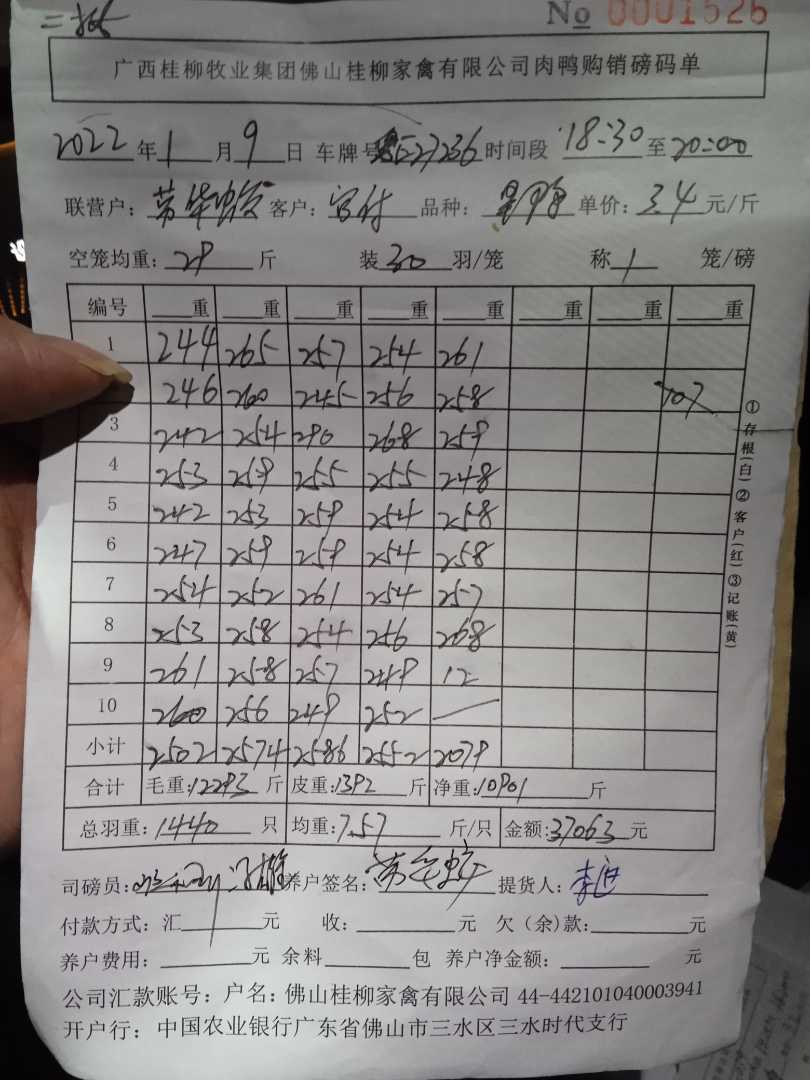 No 0001526
广西桂柳牧业集团佛山桂柳家禽有限公司肉鸭购销磅码单
2022年1月9日 车牌号 27236 时间段 18:30至20:00
联营户: 客户: 品种: 单价:3.4元/斤
空笼均重:29斤 装30羽/笼 称1笼/磅
编号 重 重 重 重 重 重 重 重
1 244 265 257 254 261
246 260 245 256 258 707
3 242 254 290 268 259
4 253 259 255 255 248
5 242 253 259 254 258
6 247 259 259 254 258
7 254 252 261 254 257
8 253 258 254 256 268
9 261 258 257 249 12
10 260 256 249 252 —
小计 2502 2574 2586 2552 2079
合计 毛重:12293斤 皮重:1392斤 净重:10901斤
总羽重:1440只 均重:7.57斤/只 金额:37063元
司磅员: 养户签名: 提货人:
付款方式:汇 元 收: 元 欠(余)款: 元
养户费用: 元 余料 包 养户净金额: 元
公司汇款账号:户名:佛山桂柳家禽有限公司 44-442101040003941
开户行:中国农业银行广东省佛山市三水区三水时代支行
①存根(白)②客户(红)③记账(黄)